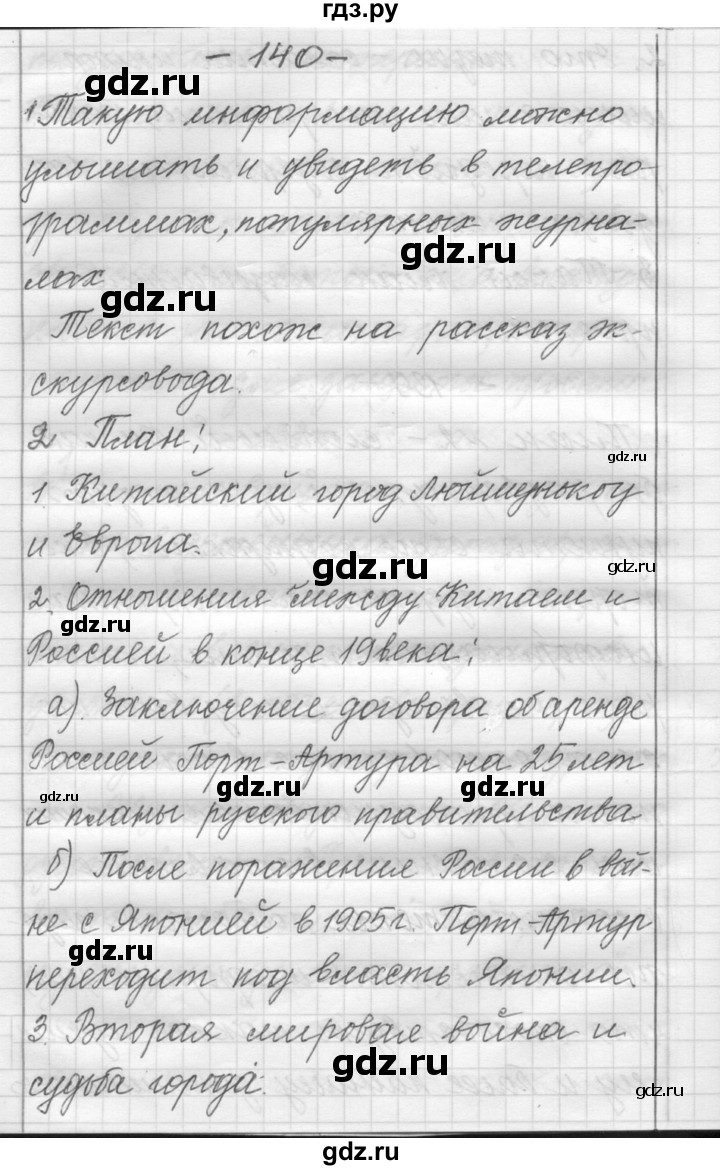 гдз.ру
- 140 -
gdz.ru
1 Такую информацию можно
улышать и увидеть в телепро-
граммах, популярных журна-
gdz.ru
лах
gdz.ru
Текст похож на рассказ эк-
скурсовода.
2 План:
gdz.ru
1 Китайский город Люйшунькоу
и Европа.
gdz.ru
gdz.ru
2. Отношения между Китаем и
gdz.ru
Россией в конце 19 века:
а). Заключение договора об аренде
Россией Порт-Артура на 25 лет
gdz.ru
gdz.ru
gdz.ru
и планы русского правительства
б) После поражения России в вой-
не с Японией в 1905 г. Порт-Артур
gdz.ru
переходит под власть Японии.
3. Вторая мировая война и
gdz.ru
судьба города.
gdz.ru
gdz.ru